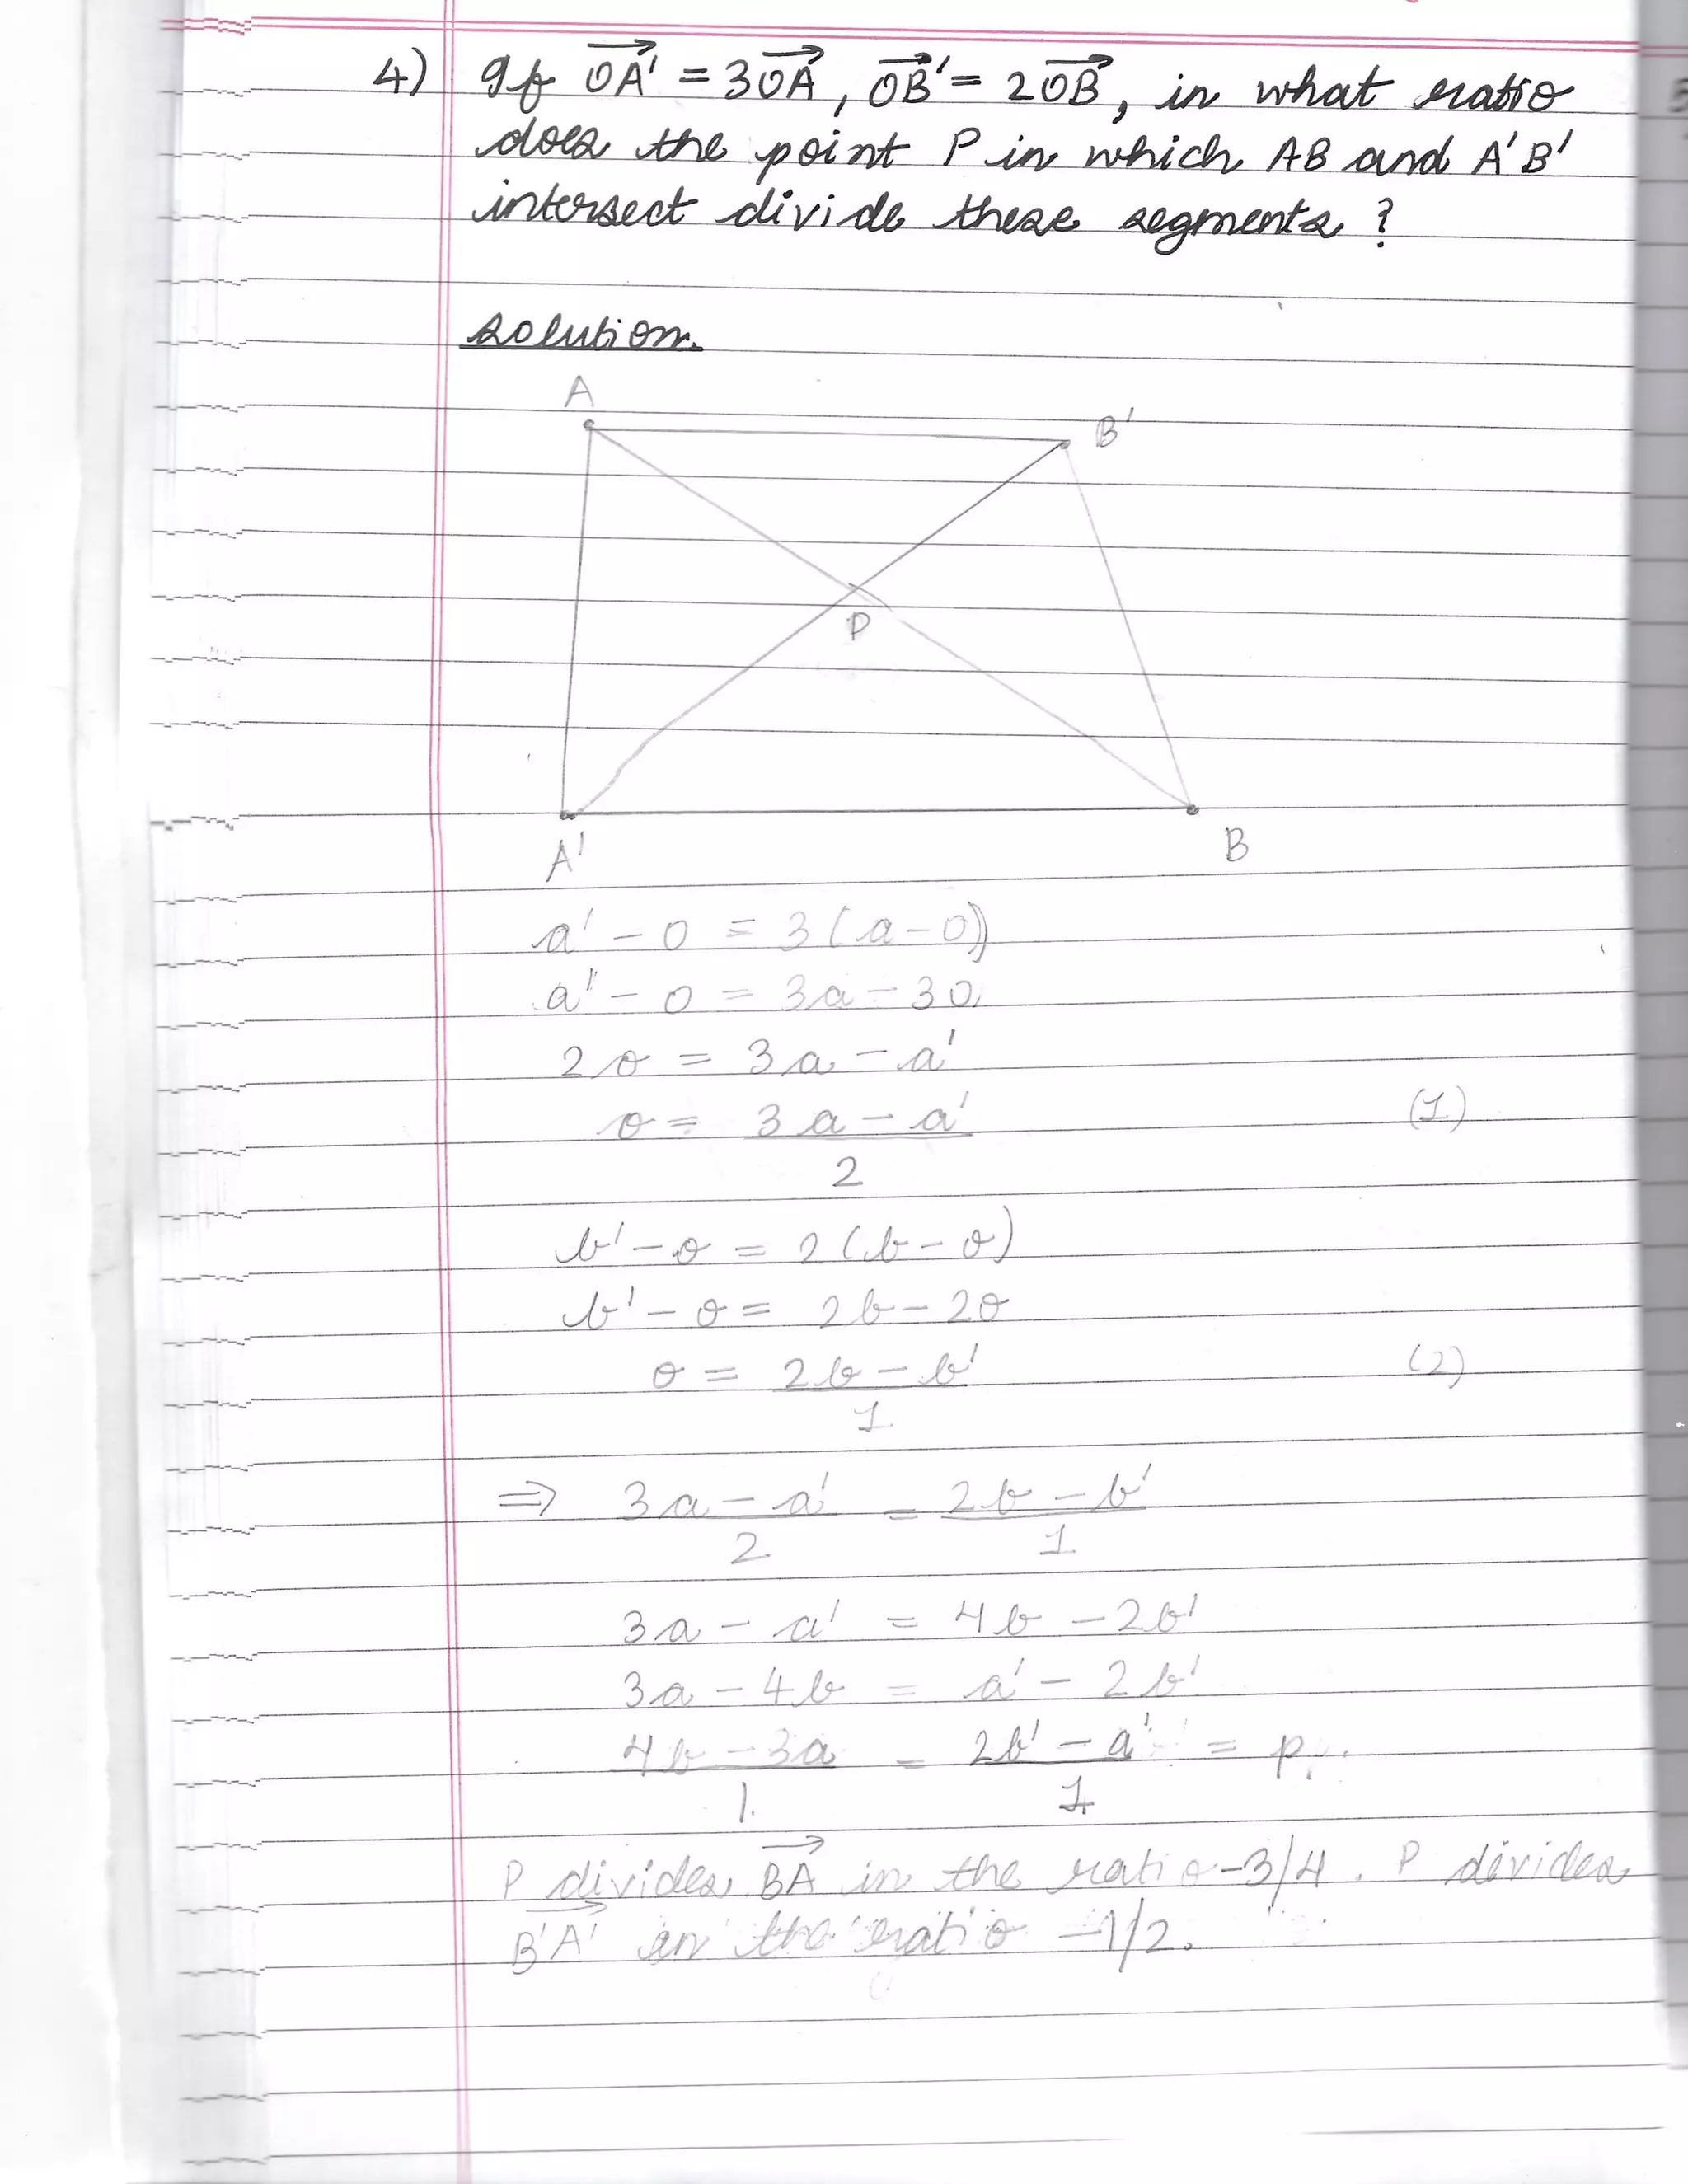 4) If OA' = 3OA, OB' = 2OB, in what ratio
does the point P in which AB and A'B'
intersect divide these segments ?
Solution.
A
B'
P
A'
B
a' - 0 = 3(a - 0)
a' - 0 = 3a - 30
20 = 3a - a'
0 = 3a - a' (1)
2
b' - 0 = 2(b - 0)
b' - 0 = 2b - 20
0 = 2b - b' (2)
1
⇒ 3a - a' = 2b - b'
2 1
3a - a' = 4b - 2b'
3a - 4b = a' - 2b'
4b - 3a = 2b' - a' = p.
1 1
P divides BA in the ratio -3/4. P divides
B'A' in the ratio -1/2.